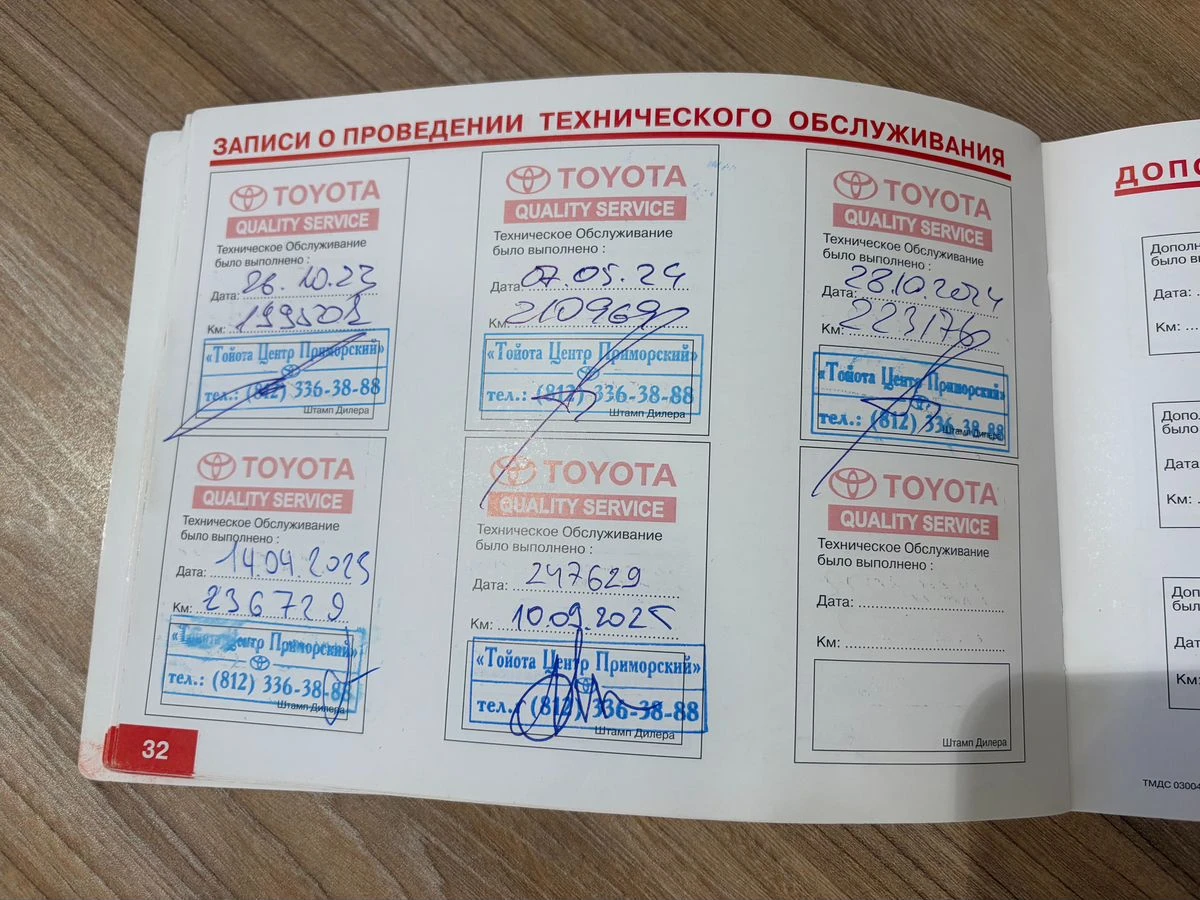 ЗАПИСИ О ПРОВЕДЕНИИ ТЕХНИЧЕСКОГО ОБСЛУЖИВАНИЯ
TOYOTA
QUALITY SERVICE
Техническое Обслуживание
было выполнено :
Дата: 26.10.23
Км: 199502
«Тойота Центр Приморский»
тел.: (812) 336-38-88
Штамп Дилера
TOYOTA
QUALITY SERVICE
Техническое Обслуживание
было выполнено :
Дата: 07.05.24
Км: 210969
«Тойота Центр Приморский»
тел.: (812) 336-38-88
Штамп Дилера
TOYOTA
QUALITY SERVICE
Техническое Обслуживание
было выполнено :
Дата: 28.10.2024
Км: 223176
«Тойота Центр Приморский»
тел.: (812) 336-38-88
Штамп Дилера
TOYOTA
QUALITY SERVICE
Техническое Обслуживание
было выполнено :
Дата: 14.04.2025
Км: 236729
«Тойота Центр Приморский»
тел.: (812) 336-38-88
Штамп Дилера
TOYOTA
QUALITY SERVICE
Техническое Обслуживание
было выполнено :
Дата: 247629
Км: 10.09.2025
«Тойота Центр Приморский»
тел.: (812) 336-38-88
Штамп Дилера
TOYOTA
QUALITY SERVICE
Техническое Обслуживание
было выполнено :
Дата:
Км:
Штамп Дилера
32
ДОПО
Дополн
было вы
Дата:
Км:
Допо
было
Дата
Км:
Доп
был
Дат
Км:
ТМДС 03004